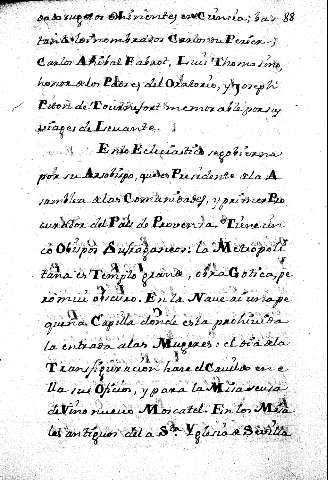 do de sugetos eminentes en Ciencia; bas 88
tará â los nombrados Carlos du Perier, y
Carlos Aníbal Fabrot, Luis Thomasino,
honor de los Padres del Oratorio, y Joseph
Pitón de Tournefort memorable por sus
viages de Levante.
En lo Eclesiastico se govierna
por su Arzobispo, que es Presidente de la A
samblea de las Comunidades, y primer Pro
curador del País de Provenza. Tiene cin
co Obispos Sufraganeos: la Metropoli
tana es Templo grande, obra Gotica, pe
ro mui obscuro. En la Nave ai una pe
queña Capilla donde está prohivida
la entrada a las Mugeres: el dia de la
Transfiguracion hace el Cavildo en e
lla sus Oficios, y para la Misa se usa
de Vino nuevo Moscatel. En los Misa
les antiguos de la Sta. Yglesia de Sevilla